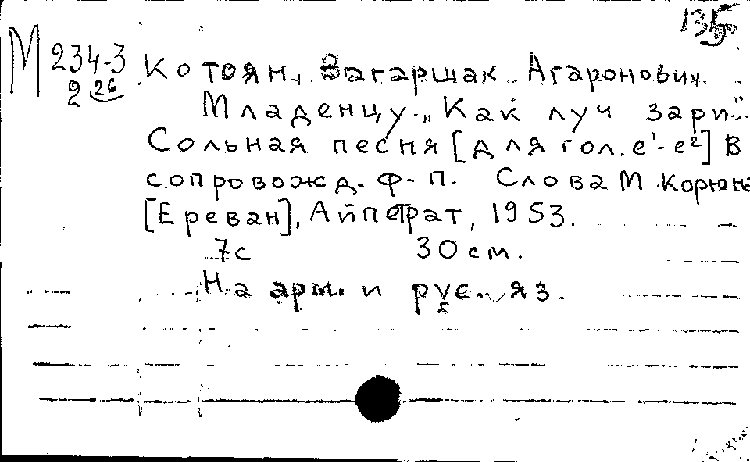 135
М 234-3 Котоян, Вагаршак Агаронович.
2 26 Младенцу. „Как луч зари".
Сольная песня [для гол. е¹-е²] в
сопровожд. ф-п. Слова М. Корюна
[Ереван], Айпетрат, 1953.
7с 30 см.
На арм. и рус. яз.